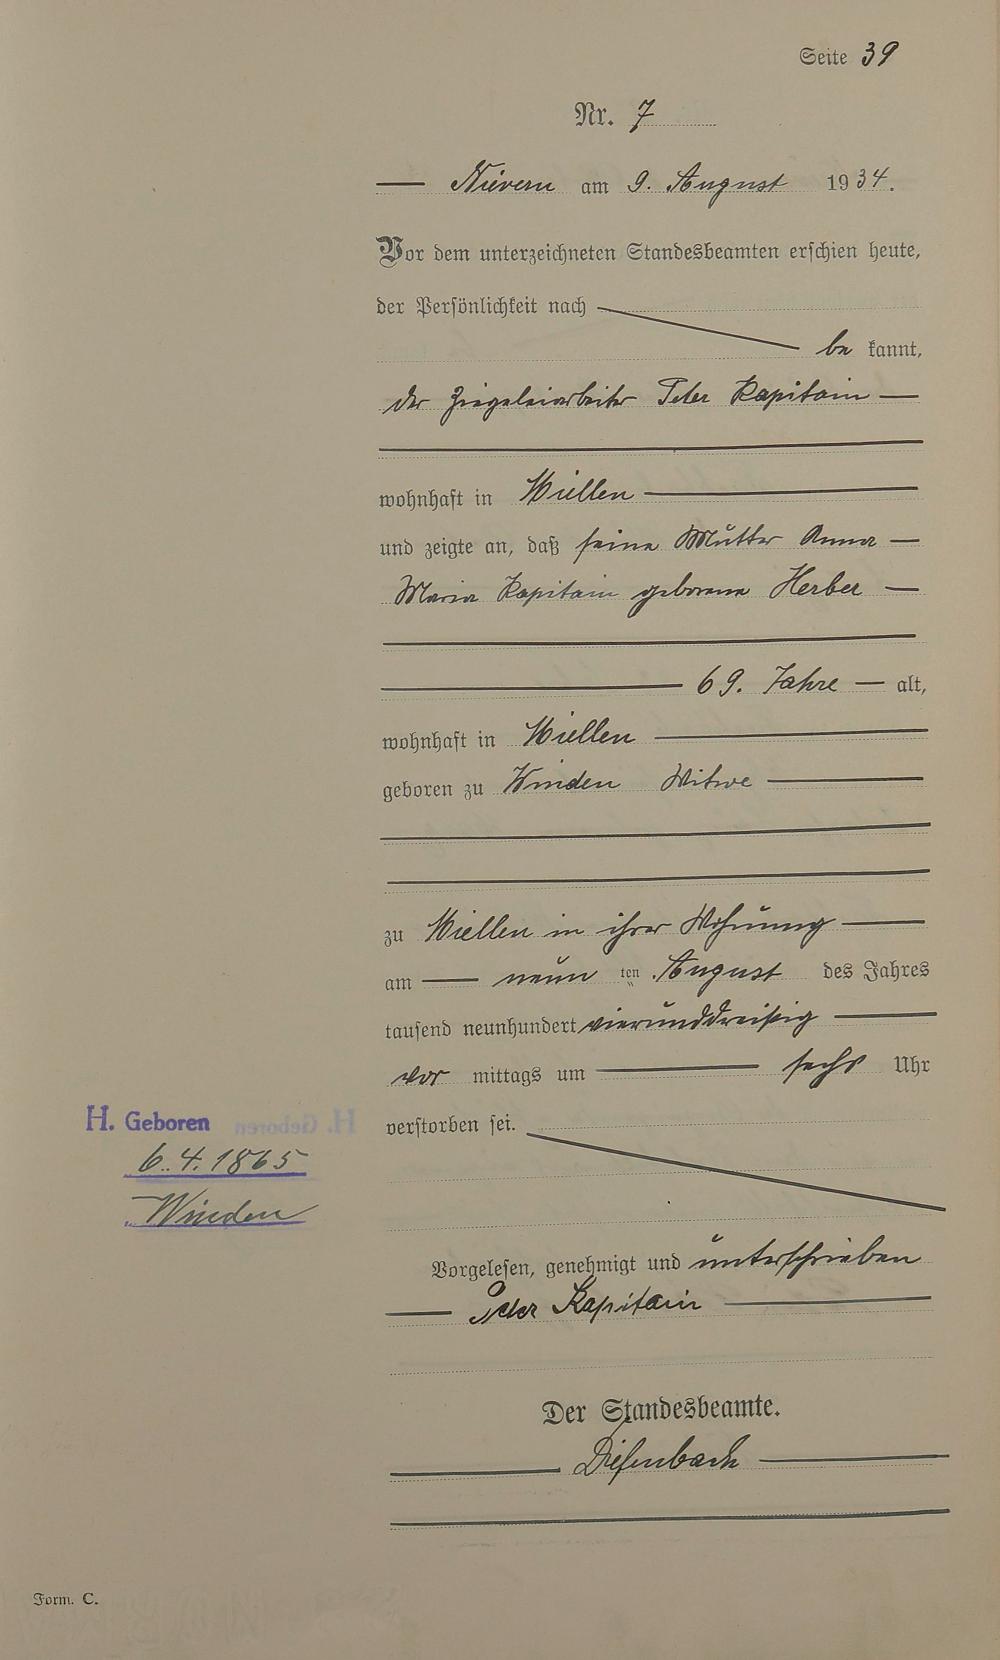 Seite 39
Nr. 7
Nievern am 9. August 1934.
Vor dem unterzeichneten Standesbeamten erschien heute,
der Persönlichkeit nach
be kannt,
der Ziegeleiarbeiter Peter Kapitain
wohnhaft in Miellen
und zeigte an, daß seine Mutter Anna
Maria Kapitain geborene Herber
69. Jahre alt,
wohnhaft in Miellen
geboren zu Winden Witwe
zu Miellen in ihrer Wohnung
am neun ten August des Jahres
tausend neunhundert vierunddreißig
vor mittags um sechs Uhr
verstorben sei.
H. Geboren
6.4.1865
Winden
Vorgelesen, genehmigt und unterschrieben
Peter Kapitain
Der Standesbeamte.
Diefenbach
Form. C.